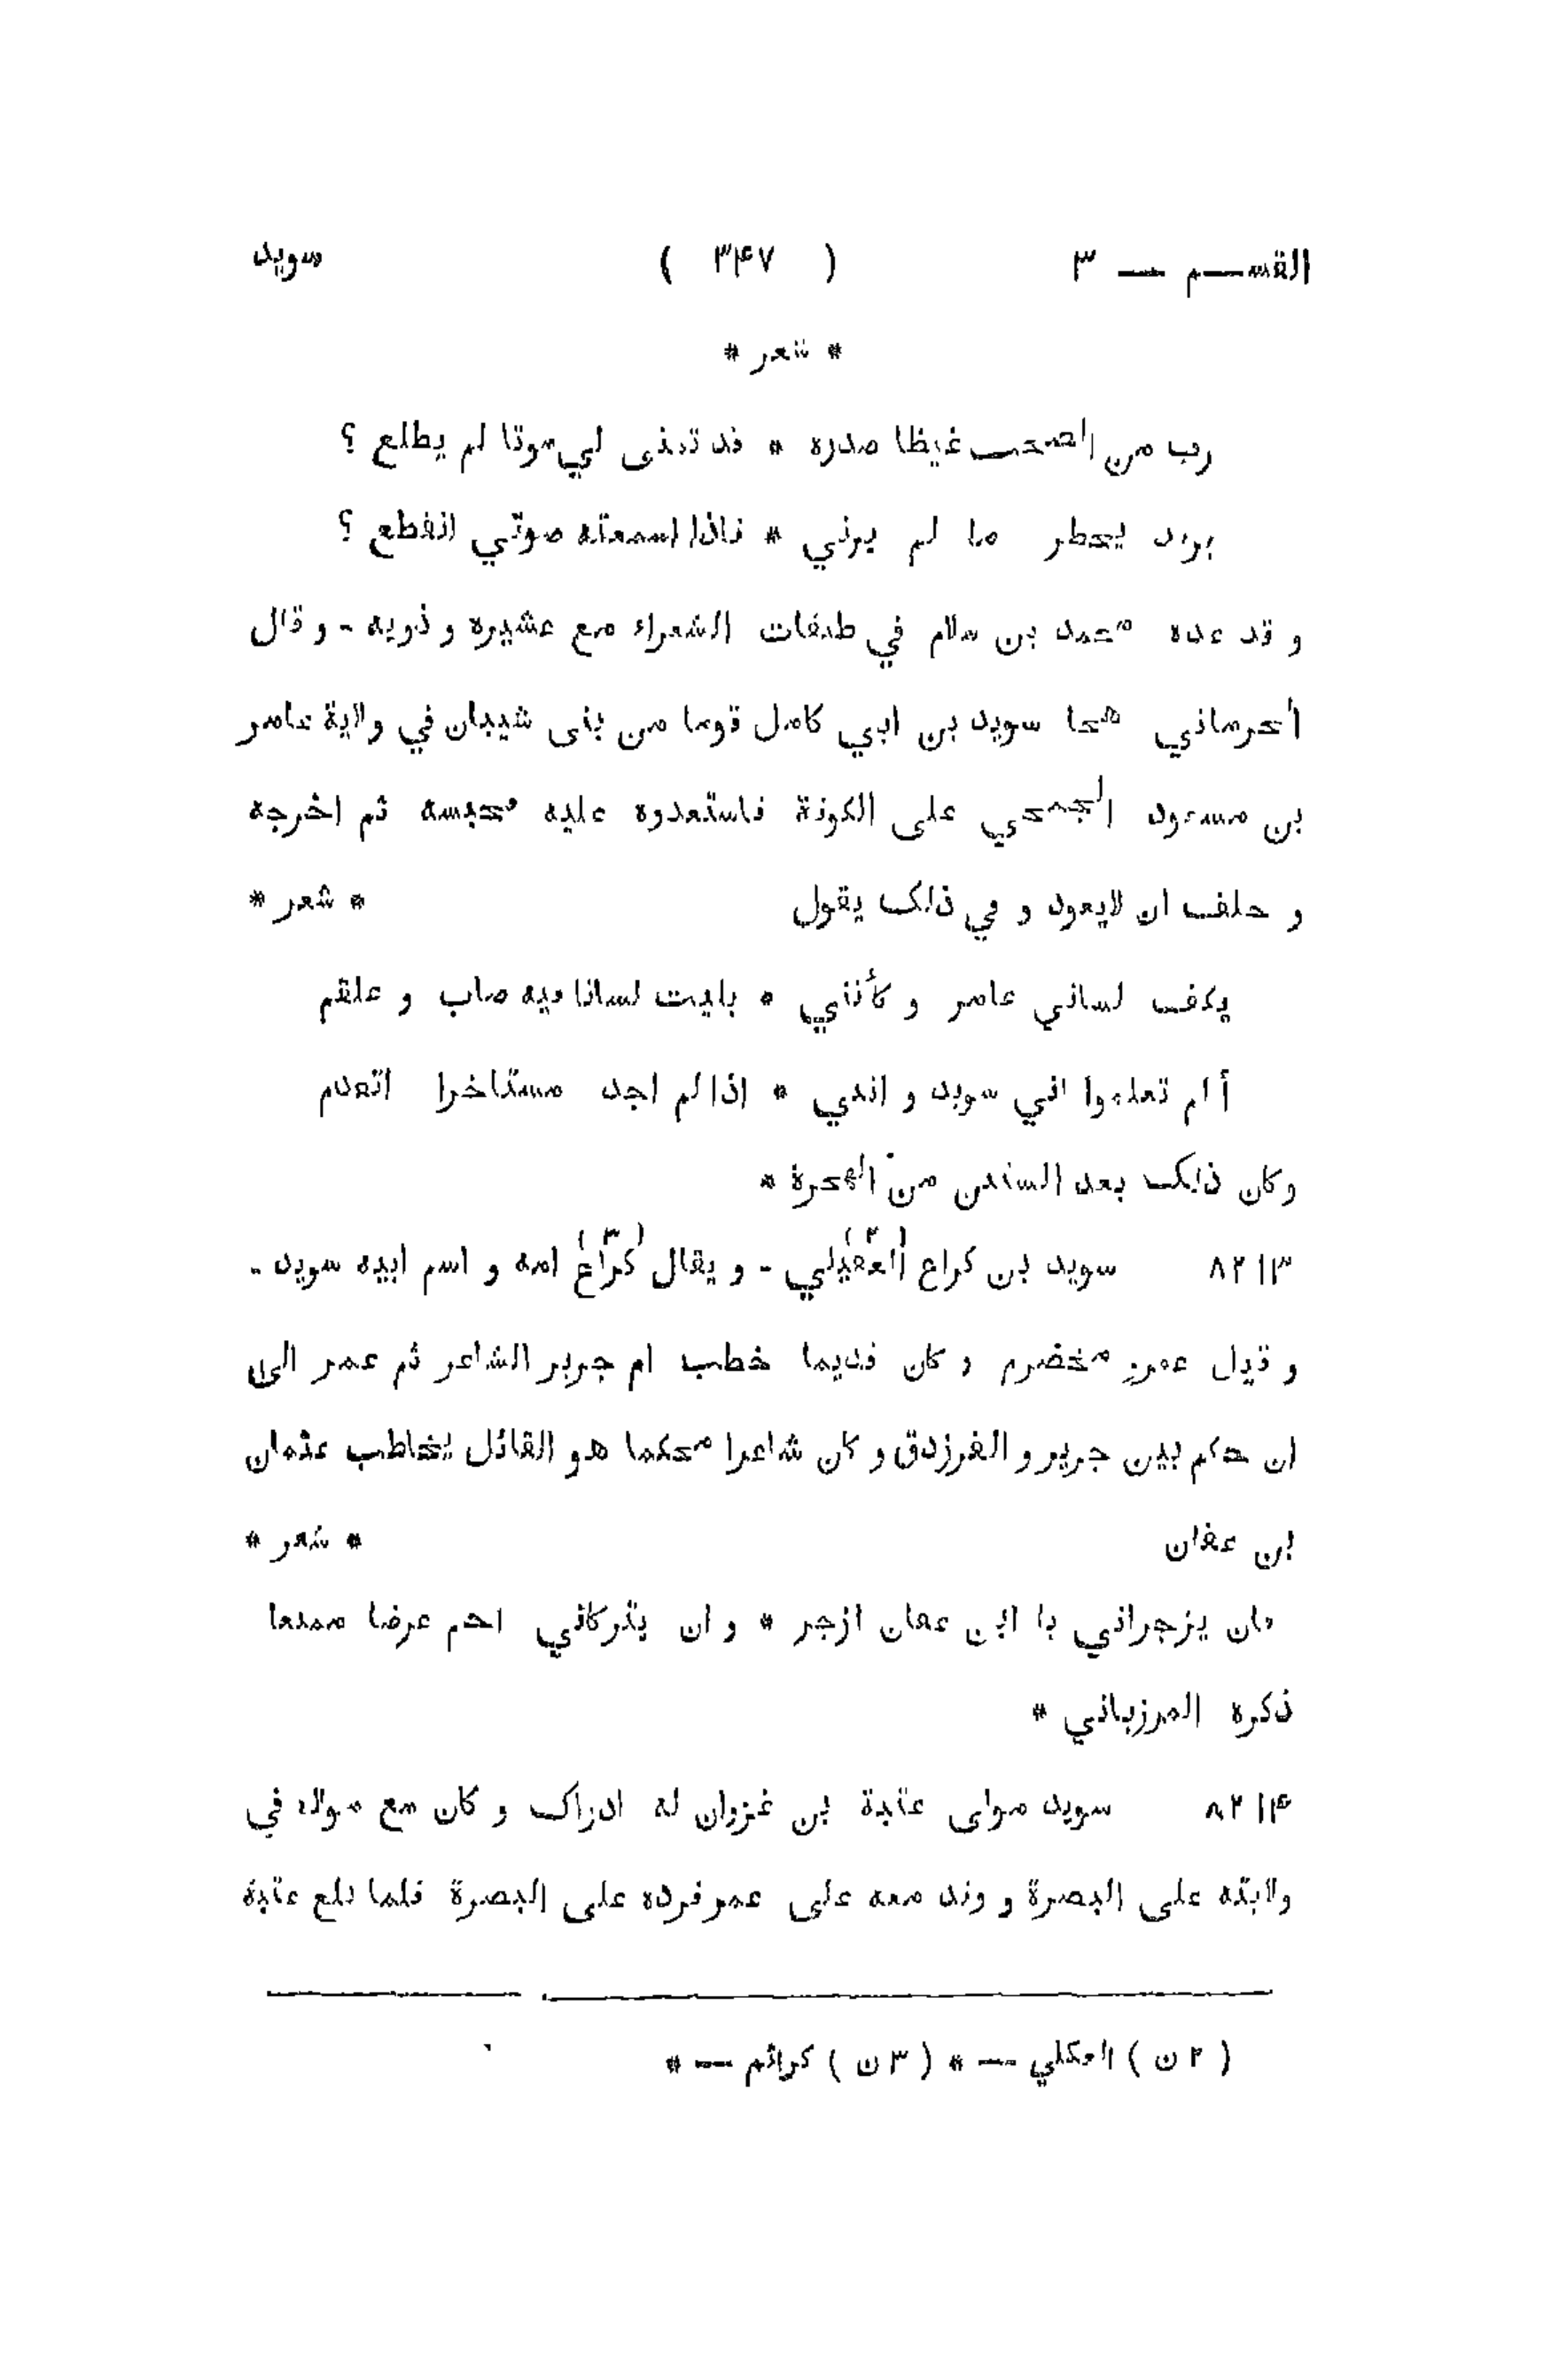 القسم — ٣ ( ٣٤٧ ) سويد
* شعر *
رب من انضجت غيظا صدره * قد تمنى لي موتا لم يطلع ؟
يريد يخطر ما لم يرني * فاذا اسمعته صوتي انقطع ؟
و قد عده محمد بن سلام في طبقات الشعراء مع عشيره و ذويه - و قال
الحرماني هجا سويد بن ابي كامل قوما من بنى شيبان في ولاية عامر
بن مسعود الجمحي على الكوفة فاستعدوه عليه فحبسه ثم اخرجه
و حلف ان لايعود و في ذلك يقول * شعر *
يكف لساني عامر و كأنني * بليت لسانا فيه صاب و علقم
أ لم تعلموا اني سويد و انني * اذا لم اجد مستاخرا اتقدم
وكان ذلك بعد الستين من الهجرة *
٨٢١٣ سويد بن كراع (العقيلي)(٢) - و يقال (كراع)(٣) امه و اسم ابيه سويد -
و قيل عمرو مخضرم و كان قديما خطب ام جرير الشاعر ثم عمر الى
ان حكم بين جرير و الفرزدق و كان شاعرا محكما هو القائل يخاطب عثمان
بن عفان * شعر *
فان يزجراني يا ابن عفان ازجر * و ان يتركاني احم عرضا ممنعا
ذكره المرزباني *
٨٢١٤ سويد مولى عتبة بن غزوان له ادراك و كان مع مولاه في
ولايته على البصرة و وفد معه على عمر فرده على البصرة فلما بلغ عتبة
( ٢ ن ) العكلي — * ( ٣ ن ) كرائم — *